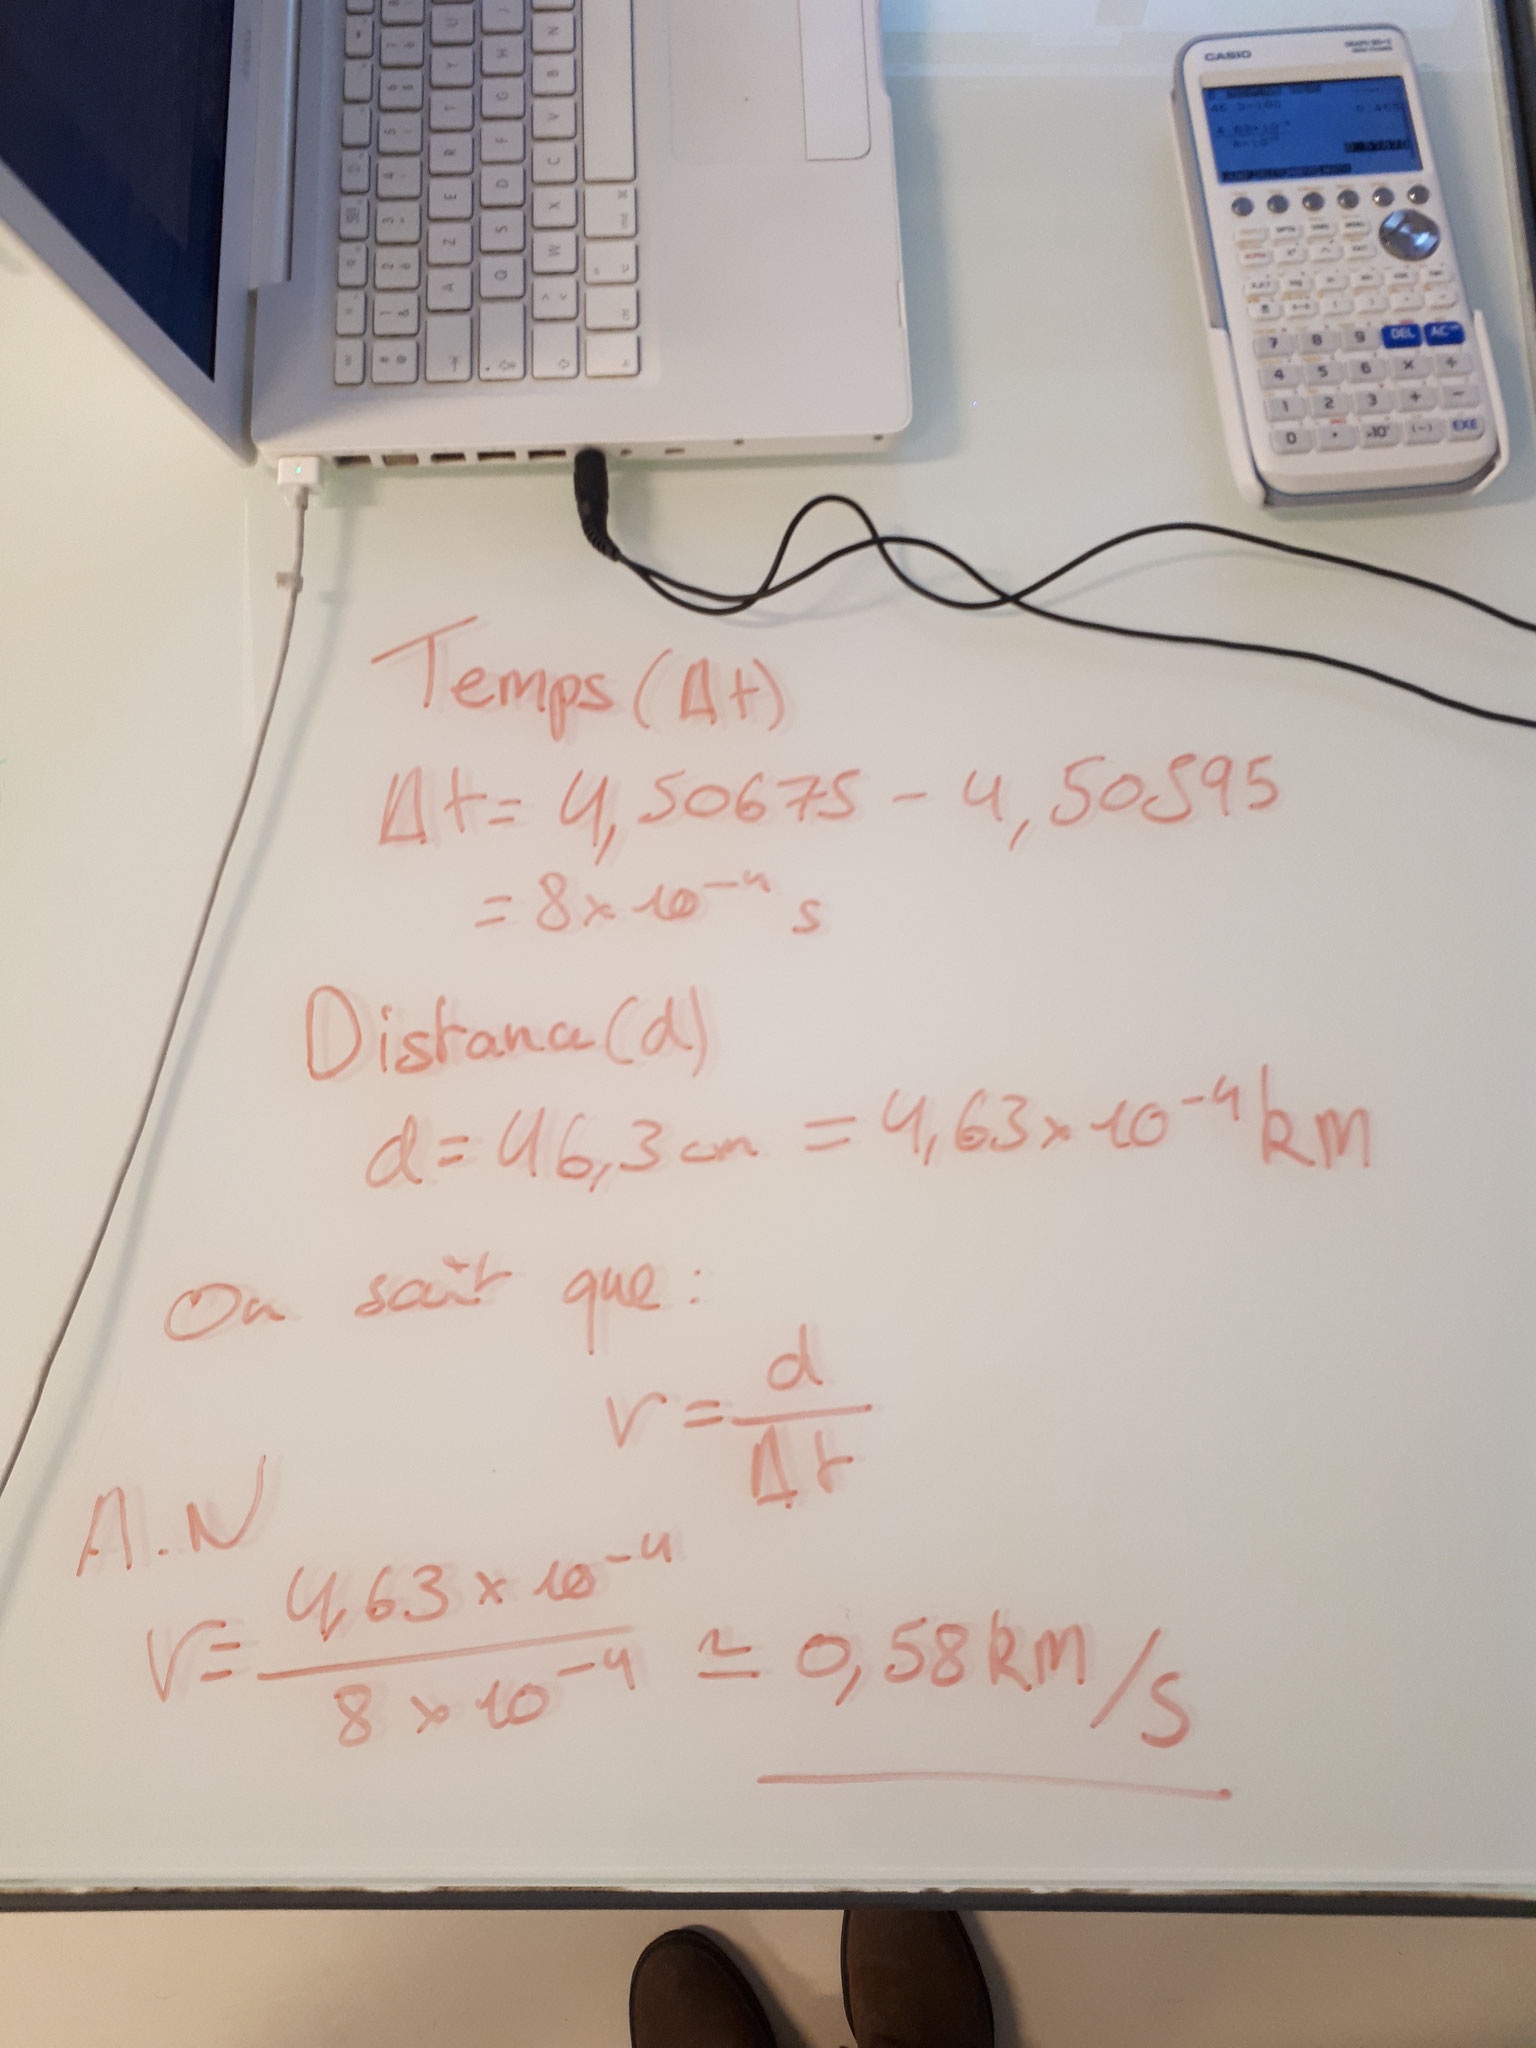 CASIO
7 8 9 DEL AC
4 5 6 × ÷
1 2 3 + −
0 . ×10ˣ (−) EXE
Temps (Δt)
Δt = 4,50675 − 4,50595
= 8 × 10⁻⁴ s
Distance (d)
d = 46,3 cm = 4,63 × 10⁻⁴ km
On saît que :
v = d / Δt
A.N
v = 4,63 × 10⁻⁴ / 8 × 10⁻⁴ ≃ 0,58 km/s